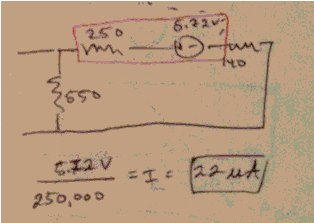 250 5.72V
40
550
5.72V
250,000 = I = 22 µA